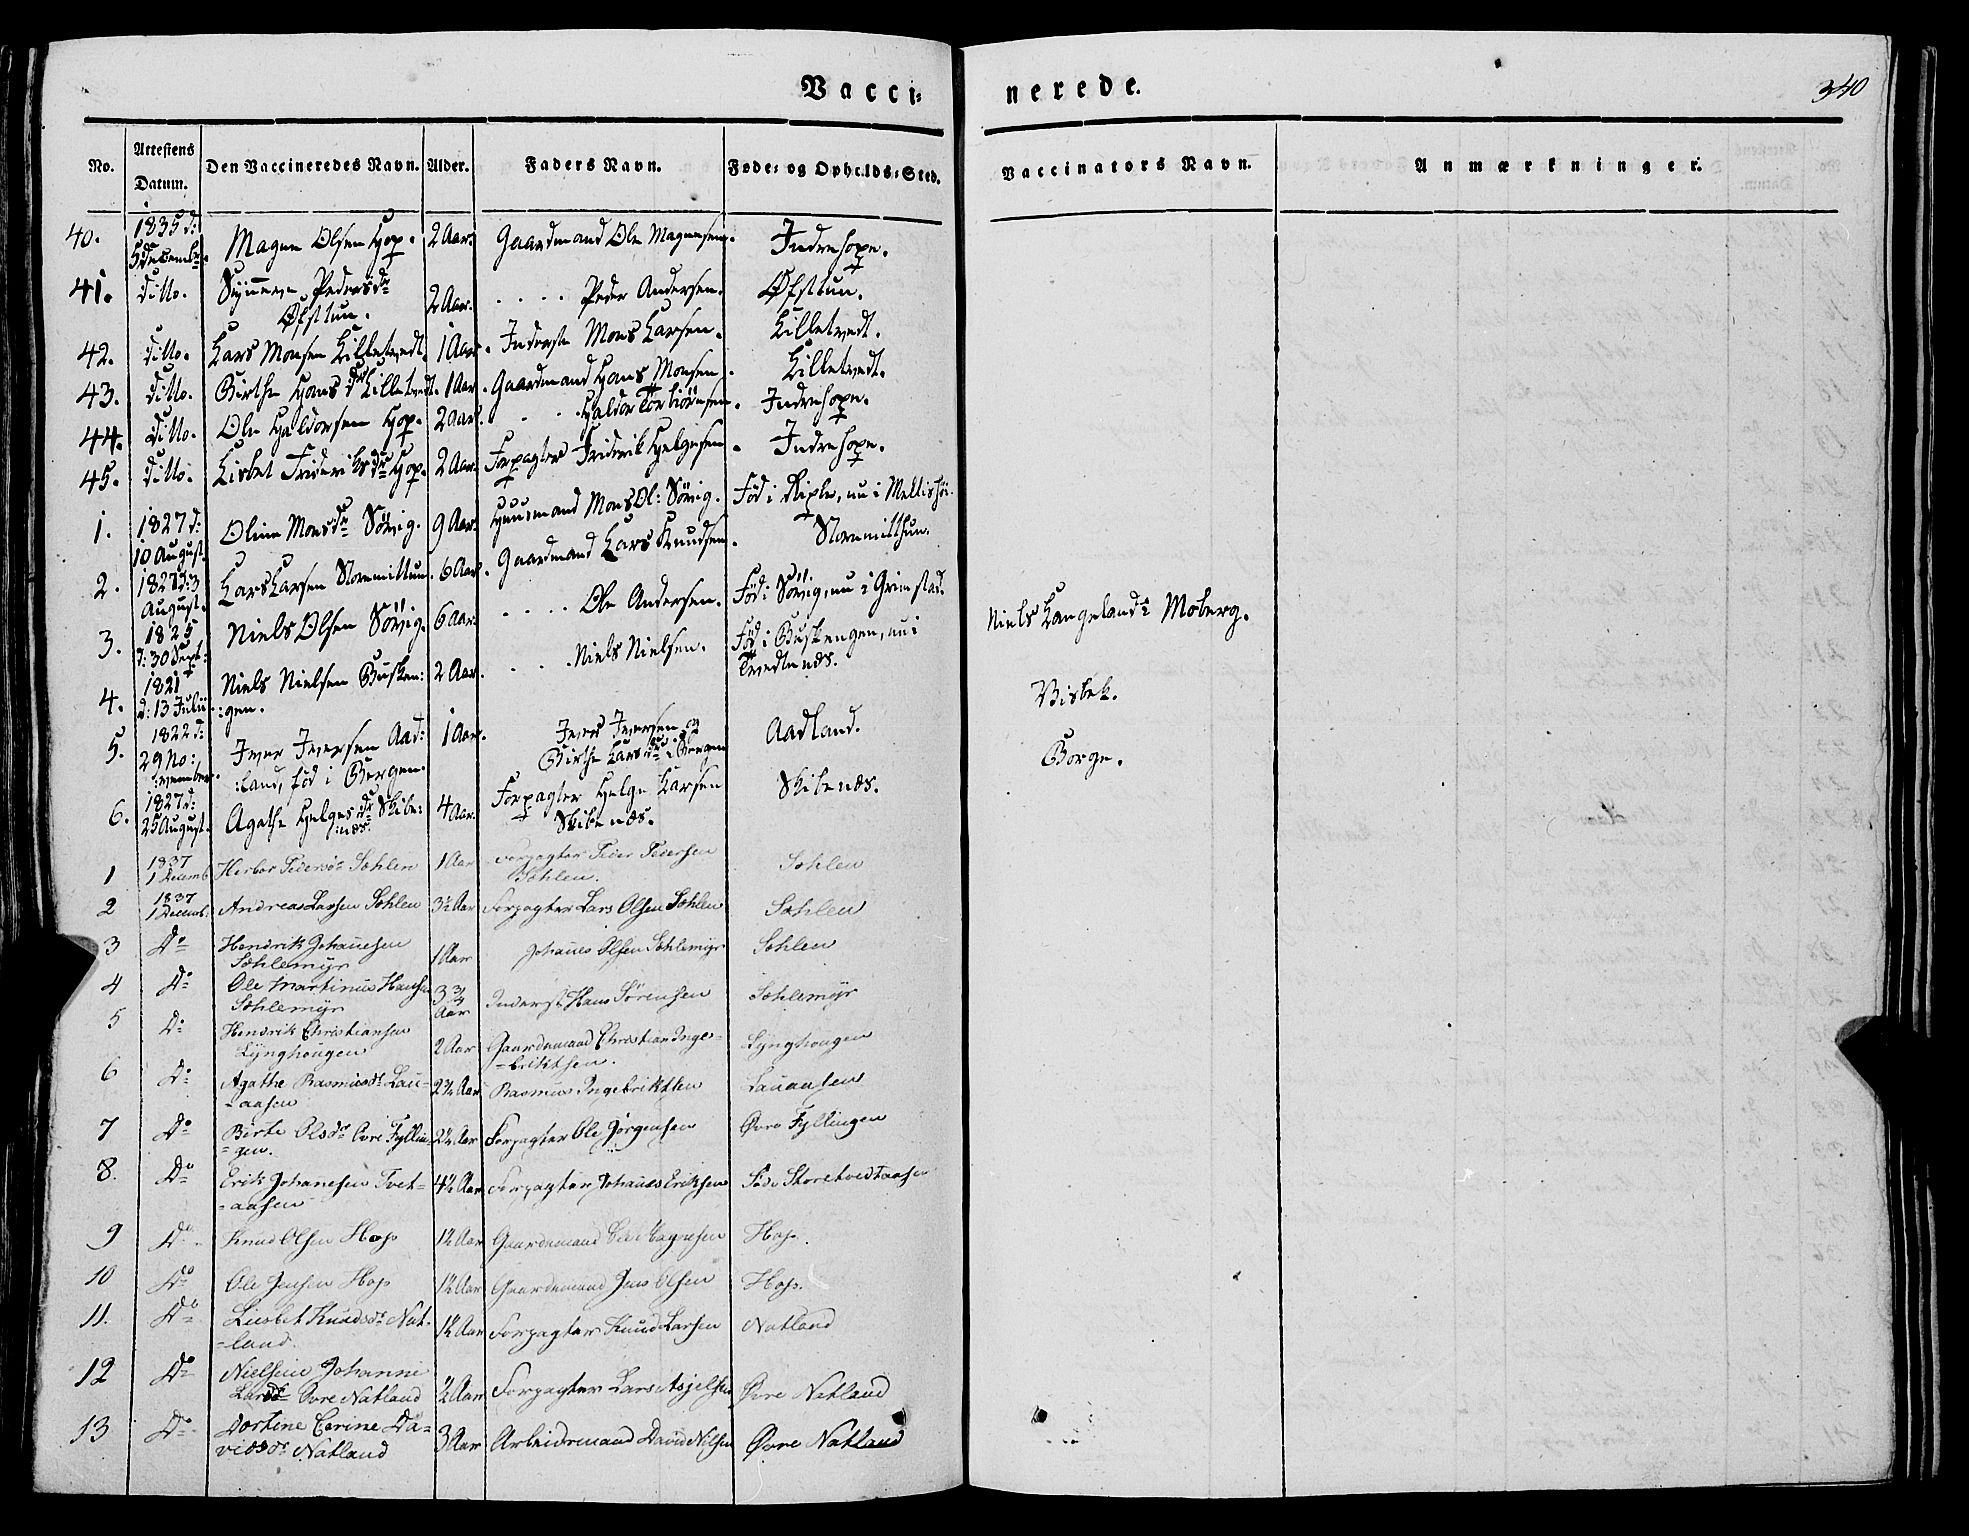 Vacci= nerede. 340
No. Attestens Datum. Den Vaccineredes Navn. Alder. Faders Navn. Føde= og Opholds=Sted. Vaccinators Navn. Anmærkninger.
40. 1835 d: 5 December. Magne Olsen Hop. 2 Aar. Gaardmand Ole Magnesen. Indrehope.
41. ditto. Synneve Pedersdr Øfsttun. 2 Aar. . . . . Peder Andersen. Øfsttun.
42. ditto. Lars Monsen Lilletvedt. 1 Aar. Inderste Mons Larsen. Lilletvedt.
43. ditto. Birthe Hansdr Lilletvedt. 1 Aar. Gaardmand Hans Monsen. Lilletvedt.
44. ditto. Ole Haldorsen Hop. 2 Aar. . . . Haldor Torbiørnsen. Indrehope.
45. ditto. Lisbet Frideriksdr Hop. 2 Aar. Forpagter Friderik Helgesen. Indrehope.
1. 1827 d: 10 August. Oline Monsdr Sörvig. 9 Aar. Huusmand Mons Ol: Sörvig. Fød i Riple, nu i
2. 1827 d: 3 August. Lars Larsen 6 Aar. Gaardmand Lars Knudsen.
3. 1825 d: 30 Sept: Niels Olsen Sörvig. 6 Aar. . . . . Ole Andersen. Fød i Sörvig, nu i Grimstad. Niels Langeland i Moberg.
4. 1821 d: 13 Julii Niels Nielsen Busken:
:gen. 2 Aar. . . . . Niels Nielsen. Fød i Buskengen, nu i Tvedtnæs. Visbek.
5. 1822 d: 29 No:
:vember. Iver Iversen Aad:
:land, fød i Bergen. 1 Aar. Iver Iversen og Birthe Larsdr i Bergen Aadland. Borge.
6. 1827 d: 25 August. Agathe Helgesdr Skibe:
:næs. 4 Aar. Forpagter Helge Larsen Skibenæs. Skibenæs.
1 1837 1 Decemb. Herbor Pedersdr Sæhlen 1 Aar Forpagter Peder Pedersen Sæhlen. Sæhlen
2 1837 1 Decemb. Andreas Larsen Sæhlen 3½ Aar Forpagter Lars Olsen Sæhlen Sæhlen
3 Do Hendrik Johanesen Sæhlemyr 1 Aar Johanes Olsen Sæhlemyr Sæhlen
4 Do Ole Martinus Hansen Sæhlemyr 3¾ Aar Inderst Hans Sörensen Sæhlemyr
5 Do Hendrik Christiansen Lynghougen 2 Aar Gaardemand Christian Inge-
-briktsen. Lynghougen
6 Do Agathe Rasmusdr Lau-
-aasen 2¼ Aar Rasmus Ingebriktsen Lauaasen
7 Do Birte Olsdr Øvre Fyllin-
-gen. 2¼ Aar Forpagter Ole Jörgensen Øvre Fyllingen
8. Do Erik Johanesen Tvet-
-aasen 4½ Aar Forpagter Johanes Eriksen Storetvedtaasen
9 Do Knud Olsen Hop 1½ Aar Gaardemand Ole Magnesen Hop.
10 Do Ole Jensen Hop 1½ Aar Gaardemand Jens Olsen Hop.
11. Do Liesbet Knudsdr Nat-
-land. 1½ Aar Forpagter Knud Larsen Natland
12 Do Nielsine Johanne Larsdr Øvre Natland ½ Aar Forpagter Lars Øvre Natland
13 Do Dortine Cerine Da-
vidsdr Natland 3 Aar Arbeidsmand David Nilsen Øvre Natland